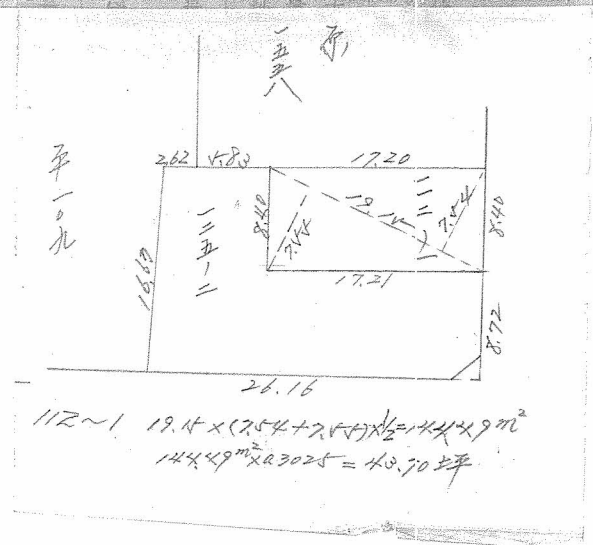 一五五八
2.62 5.83 17.20
平一〇九
一二五ノ二
8.40
7.55
19.15
一一二ノ一
7.54
8.40
16.67
17.21
8.72
26.16
112~1 19.15×(7.54+7.55)×1/2=144.49m²
144.49m²×0.3025=43.70坪